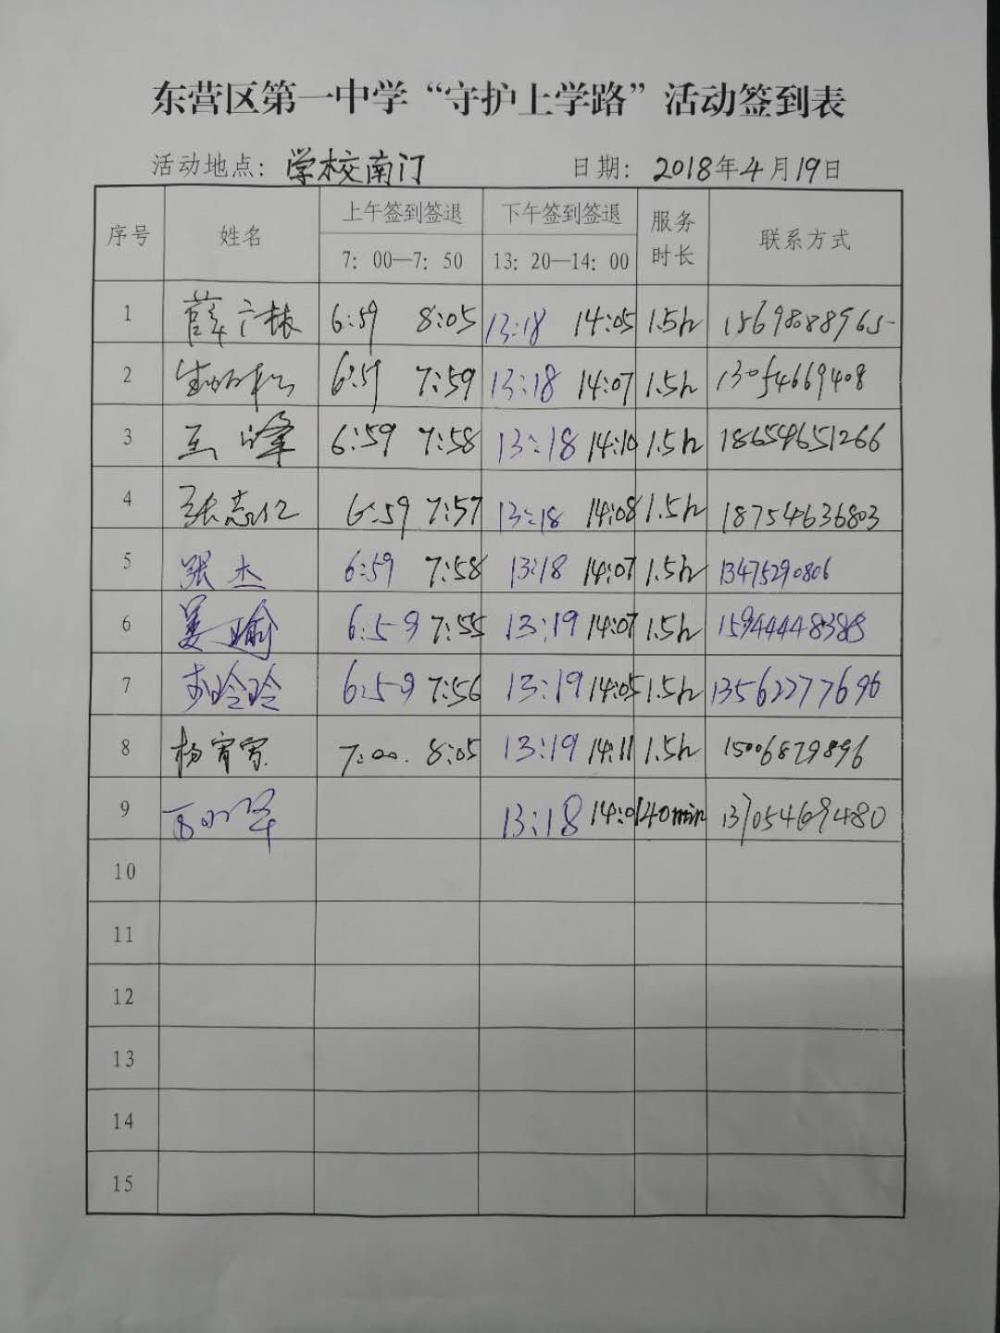 东营区第一中学“守护上学路”活动签到表
活动地点: 学校南门 日期: 2018年4月19日
序号 姓名 上午签到签退 下午签到签退 服务时长 联系方式
7:00—7:50 13:20—14:00
1 薛广林 6:59 8:05 13:18 14:05 1.5h 15698088965
2 6:59 7:59 13:18 14:07 1.5h 13054669408
3 王峰 6:59 7:58 13:18 14:10 1.5h 18654651266
4 张志仁 6:59 7:57 13:18 14:08 1.5h 18754636803
5 张杰 6:59 7:58 13:18 14:07 1.5h 13475290806
6 姜瑜 6:59 7:55 13:19 14:07 1.5h 15944448388
7 李玲玲 6:59 7:56 13:19 14:05 1.5h 13562277696
8 杨宵宵 7:00 8:05 13:19 14:11 1.5h 15006879896
9 13:18 14:01 40min 13705469480
10
11
12
13
14
15